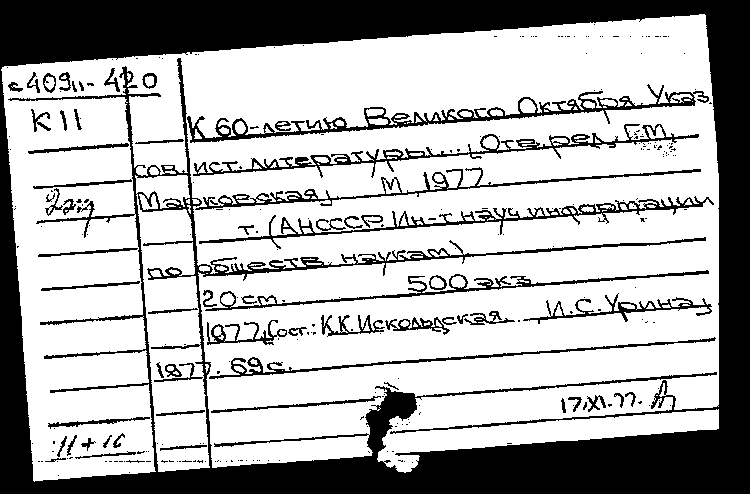 с409п-420
К11
К 60-летию Великого Октября. Указ.
сов. ист. литературы... [Отв. ред. Г.М.
2 эк.
Марковская]. М., 1977.
т. (АН СССР. Ин-т науч. информации
по обществ. наукам)
20 см. 500 экз.
1977. [Сост.: К.К. Искольдская, И.С. Урина].
1977. 69 с.
17.XI.77.
11+16